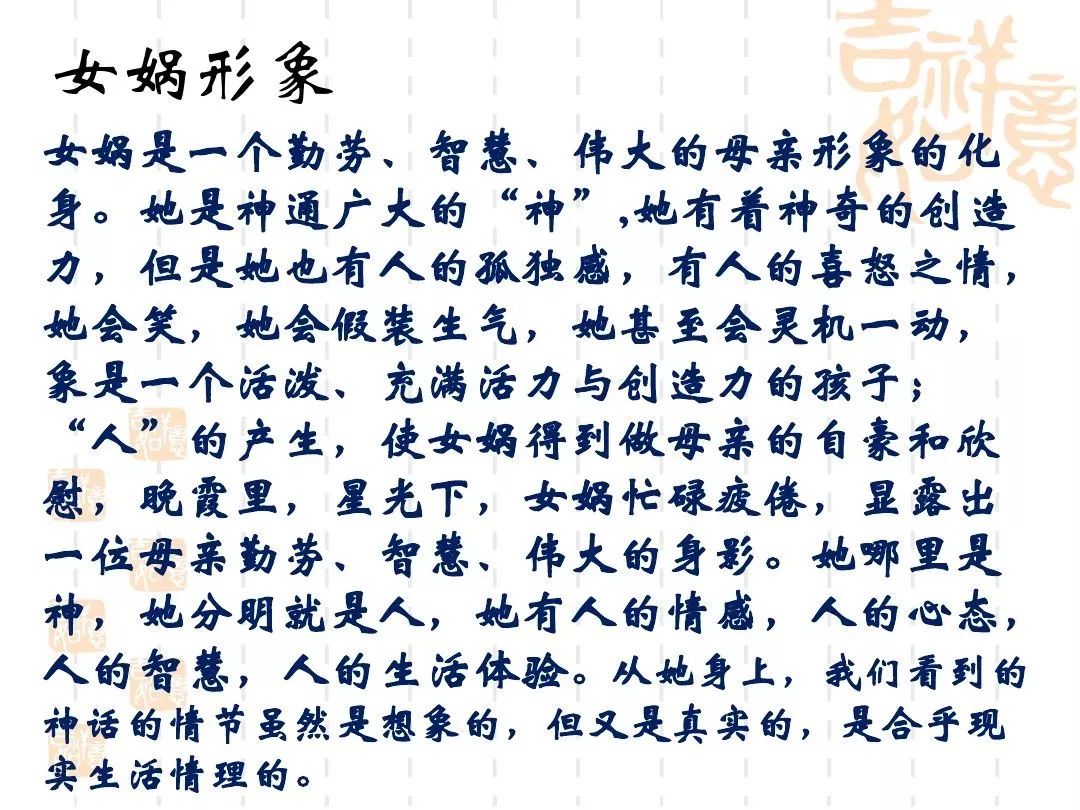 女娲形象
吉祥如意
女娲是一个勤劳、智慧、伟大的母亲形象的化
身。她是神通广大的“神”,她有着神奇的创造
力，但是她也有人的孤独感，有人的喜怒之情，
她会笑，她会假装生气，她甚至会灵机一动，
象是一个活泼、充满活力与创造力的孩子；
“人”的产生，使女娲得到做母亲的自豪和欣
慰，晚霞里，星光下，女娲忙碌疲倦，显露出
一位母亲勤劳、智慧、伟大的身影。她哪里是
神，她分明就是人，她有人的情感，人的心态，
人的智慧，人的生活体验。从她身上，我们看到的
神话的情节虽然是想象的，但又是真实的，是合乎现
实生活情理的。